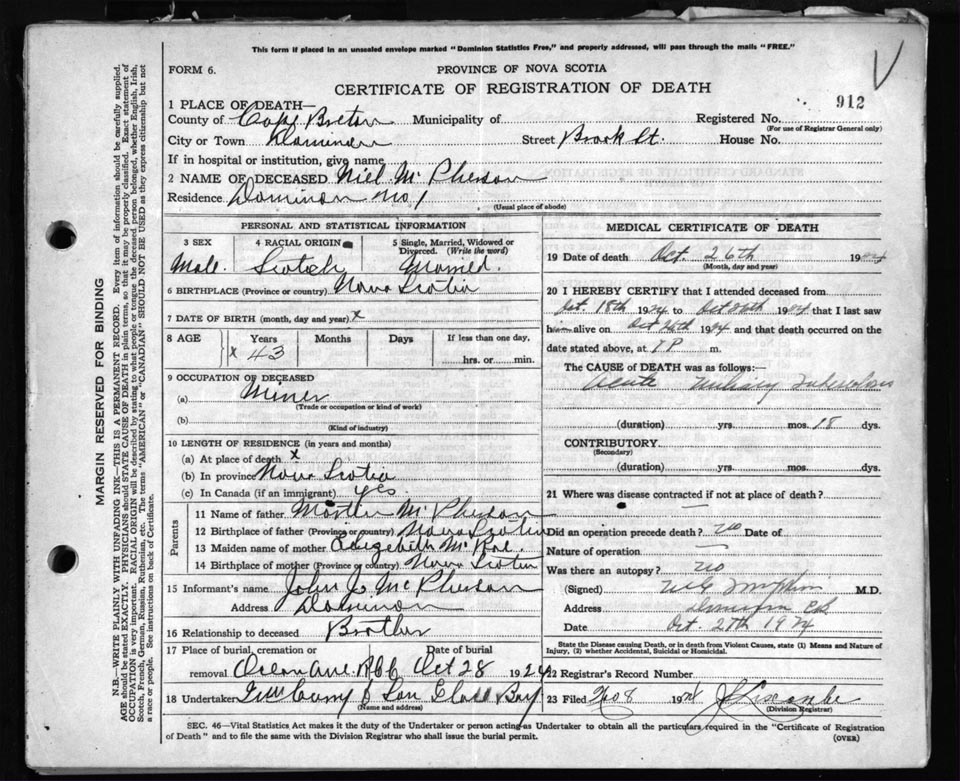 This form if placed in an unsealed envelope marked "Dominion Statistics Free," and properly addressed, will pass through the mails "FREE."
FORM 6.
PROVINCE OF NOVA SCOTIA
CERTIFICATE OF REGISTRATION OF DEATH
912
1 PLACE OF DEATH—
County of Cape Breton Municipality of Registered No.
(For use of Registrar General only)
City or Town Dominion Street Brook St. House No.
If in hospital or institution, give name
2 NAME OF DECEASED Niel McPherson
Residence Dominion No 1
(Usual place of abode)
PERSONAL AND STATISTICAL INFORMATION
3 SEX 4 RACIAL ORIGIN 5 Single, Married, Widowed or Divorced. (Write the word)
Male. Scotch Married.
6 BIRTHPLACE (Province or country) Nova Scotia
7 DATE OF BIRTH (month, day and year) x
8 AGE Years Months Days If less than one day,
x 43 hrs. or min.
9 OCCUPATION OF DECEASED
(a) Miner
(Trade or occupation or kind of work)
(b)
(Kind of industry)
10 LENGTH OF RESIDENCE (in years and months)
(a) At place of death x
(b) In province Nova Scotia
(c) In Canada (if an immigrant) Yes.
Parents
11 Name of father McPherson
12 Birthplace of father (Province or country) Nova Scotia
13 Maiden name of mother Elizabeth McRae.
14 Birthplace of mother (Province or country) Nova Scotia
15 Informant's name John J. McPherson
Address Dominion
16 Relationship to deceased Brother
17 Place of burial, cremation or Date of burial
removal Ocean Ave. Oct 28 1924
18 Undertaker & Son Glace Bay
(Name and address)
MEDICAL CERTIFICATE OF DEATH
19 Date of death Oct. 26th 1924
(Month, day and year)
20 I HEREBY CERTIFY that I attended deceased from
Oct. 18th 1924 to Oct 26th 1924 that I last saw
him alive on Oct 26th 1924 and that death occurred on the
date stated above, at 7 P m.
The CAUSE OF DEATH was as follows:—
Acute Miliary Tuberculosis
(duration) yrs. mos. 18 dys.
CONTRIBUTORY
(Secondary)
(duration) yrs. mos. dys.
21 Where was disease contracted if not at place of death?
Did an operation precede death? no Date of
Nature of operation —
Was there an autopsy? no
(Signed) M.D.
Address Dominion C.B.
Date Oct. 27th 1924
State the Disease causing Death, or in death from Violent Causes, state (1) Means and Nature of Injury, (2) whether Accidental, Suicidal or Homicidal.
22 Registrar's Record Number
23 Filed 1924
(Division Registrar)
SEC. 46—Vital Statistics Act makes it the duty of the Undertaker or person acting as Undertaker to obtain all the particulars required in the "Certificate of Registration
of Death" and to file the same with the Division Registrar who shall issue the burial permit.
(OVER)
MARGIN RESERVED FOR BINDING
N.B.—WRITE PLAINLY WITH UNFADING INK—THIS IS A PERMANENT RECORD. Every item of information should be carefully supplied.
AGE should be stated EXACTLY. PHYSICIANS should STATE CAUSE OF DEATH in plain terms, so that it may be properly classified. Exact statement of
OCCUPATION is very important. RACIAL ORIGIN will be described by stating to what people or tongue the deceased person belonged, whether English, Irish,
Scotch, French, German, Russian, Ruthenian, etc. The terms "AMERICAN" or "CANADIAN" SHOULD NOT BE USED as they express citizenship but not
a race or people. See instructions on back of Certificate.